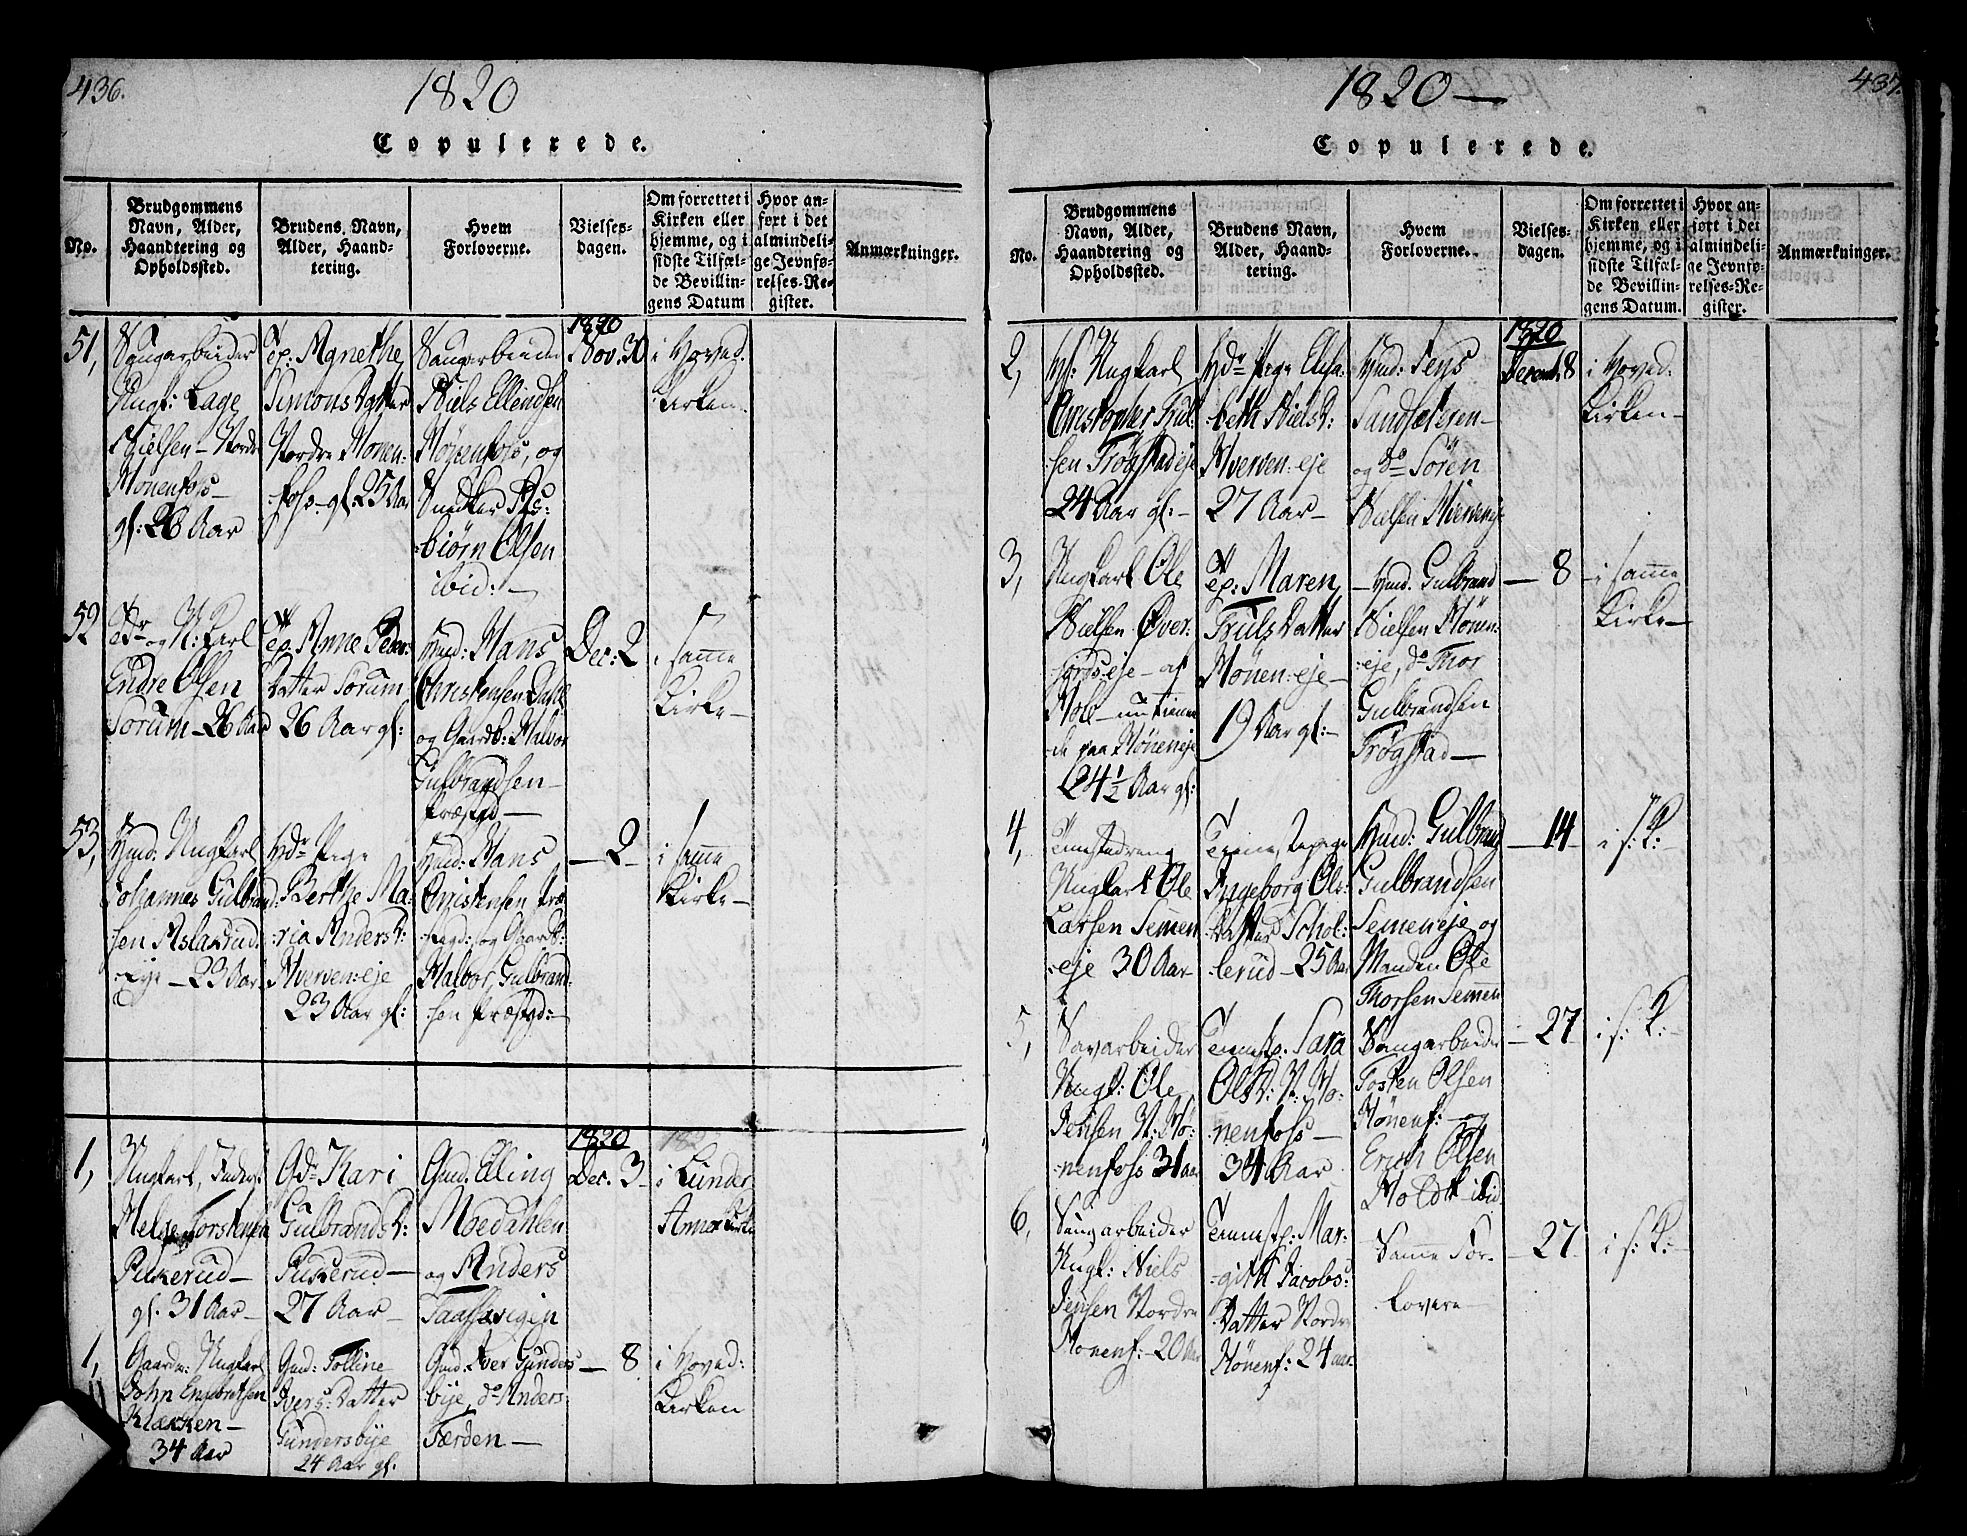 436.
1820
Copulerede.
No.
Brudgommens
Navn, Alder,
Haandtering og
Opholdssted.
Brudens Navn,
Alder, Haand-
tering.
Hvem
Forloverne.
Vielses-
dagen.
Om forrettet i
Kirken eller
hjemme, og i
sidste Tilfæl-
de Bevillin-
gens Datum
Hvor an-
ført i det
almindeli-
ge Jevnfø-
relses-Re-
gister.
Anmærkninger.
51,
Saugarbeider
Ungk: Lage
Nielsen - Nordre
Hönenfoss -
gl: 26 Aar
Agnethe
Simons Datter
Nordre Hönen:
foss - gl: 25 Aar
Saugarbeider
Niels Ellendsen
Hönenfoss, og
Snedker As:
:biörn Olsen
ibid: -
1820
Nov. 30
i Hoved:
Kirken
52
og U: Karl
Endre Olsen
Sorum - 26 Aar
Anne Peder:
Datter Sorum
26 Aar gl:
Huusmd: Hans
Christensen
og Gaardb: Halvor
Gulbrandsen -
Præstgd -
Dec: 2
i samme
Kirke -
53,
Huusmd: Ungkarl
Johannes Gulbrand:
sen Aslakrud:
- Eje - 23 Aar
Hd: Pige
Berthe Ma:
:ria Andersd:
Hverven: eje
23 Aar gl:
Huusmd: Hans
Christensen Præ
stegd: og Gaardb:
Halvor Gulbrand:
:sen Præstgd: -
- 2 -
i samme
Kirke -
1,
Ungkarl,
Helge Torstensen
Pukerud -
gl. 31 Aar -
Gd: Kari
Gulbrandsd:
Pukerud -
27 Aar -
Gmd. Elling
Moedahlen
og Anders
1820
Dec. 3
i Lunder
Annex Kirke
1,
Gaardm: Ungkarl
John Engebretsen
Klækken -
34 Aar
Gmd: Golline
Ivers: Datter
Gundersbÿe
24 Aar gl.
Gmd. Iver Gunders
bÿe, do Anders
Færden -
- 8
i Hoved:
Kirken
437.
1820 -
Copulerede.
No.
Brudgommens
Navn, Alder,
Haandtering og
Opholdssted.
Brudens Navn,
Alder, Haand-
tering.
Hvem
Forloverne.
Vielses-
dagen.
Om forrettet i
Kirken eller
hjemme, og i
sidste Tilfæl-
de Bevillin-
gens Datum.
Hvor an-
ført i det
almindeli-
ge Jevnfø-
relses-Re-
gister.
Anmærkninger.
2,
Ungkarl
Christopher Trul:
:sen Trögstad eje
24 Aar gl: -
Hd: Pige Elisa:
beth Nielsd:
Hverven: eje
27 Aar -
Huusmd: Jens
Sandsæteren -
og do Sören
Nielsen Hverveneje
1820
Decemb. 8
i Hoved:
Kirken -
3,
Ungkarl Ole
Nielsen Över:
af
Hole - nu tienen
de paa Höneneje
24½ Aar gl:
Maren
Truls Datter
Hönen: eje -
19 Aar gl: -
- Huusmd: Gulbrand
Nielsen Hönen:
:eje, do Thor
Gulbrandsen
Trögstad -
- 8
- i samme
Kirke -
4,
Tienestedreng
Ungkarl Ole
Larsen Semmen
:eje 30 Aar
Tienestepige
Ingeborg Ols:
Datter Schol:
:lerud - 25 Aar
Huusmd: Gulbrand
Gulbrandsen
Semeneje og
Manden Ole
Thorsen Semmen
- 14 -
i s: K: -
5,
Savarbeider
Ungk: Ole
Jensen N: Hö:
:nenfoss 31 aar
Tienestp. Sara
Olsd: N: Hö:
:nenfoss -
34 Aar
Saugarbeider
Tosten Olsen
Hönenf: - og
Erich Olsen
Holdt ibid
- 27
i s: K: -
6,
Saugarbeider
Ungk: Niels
Jensen Nordre
Hönenf: - 20 Aar
Tienestp: Mar:
:gith Jacobs:
Datter Nordre
Hönenf: 24 aar
Samme For-
lovere -
- 27
i s: K: -